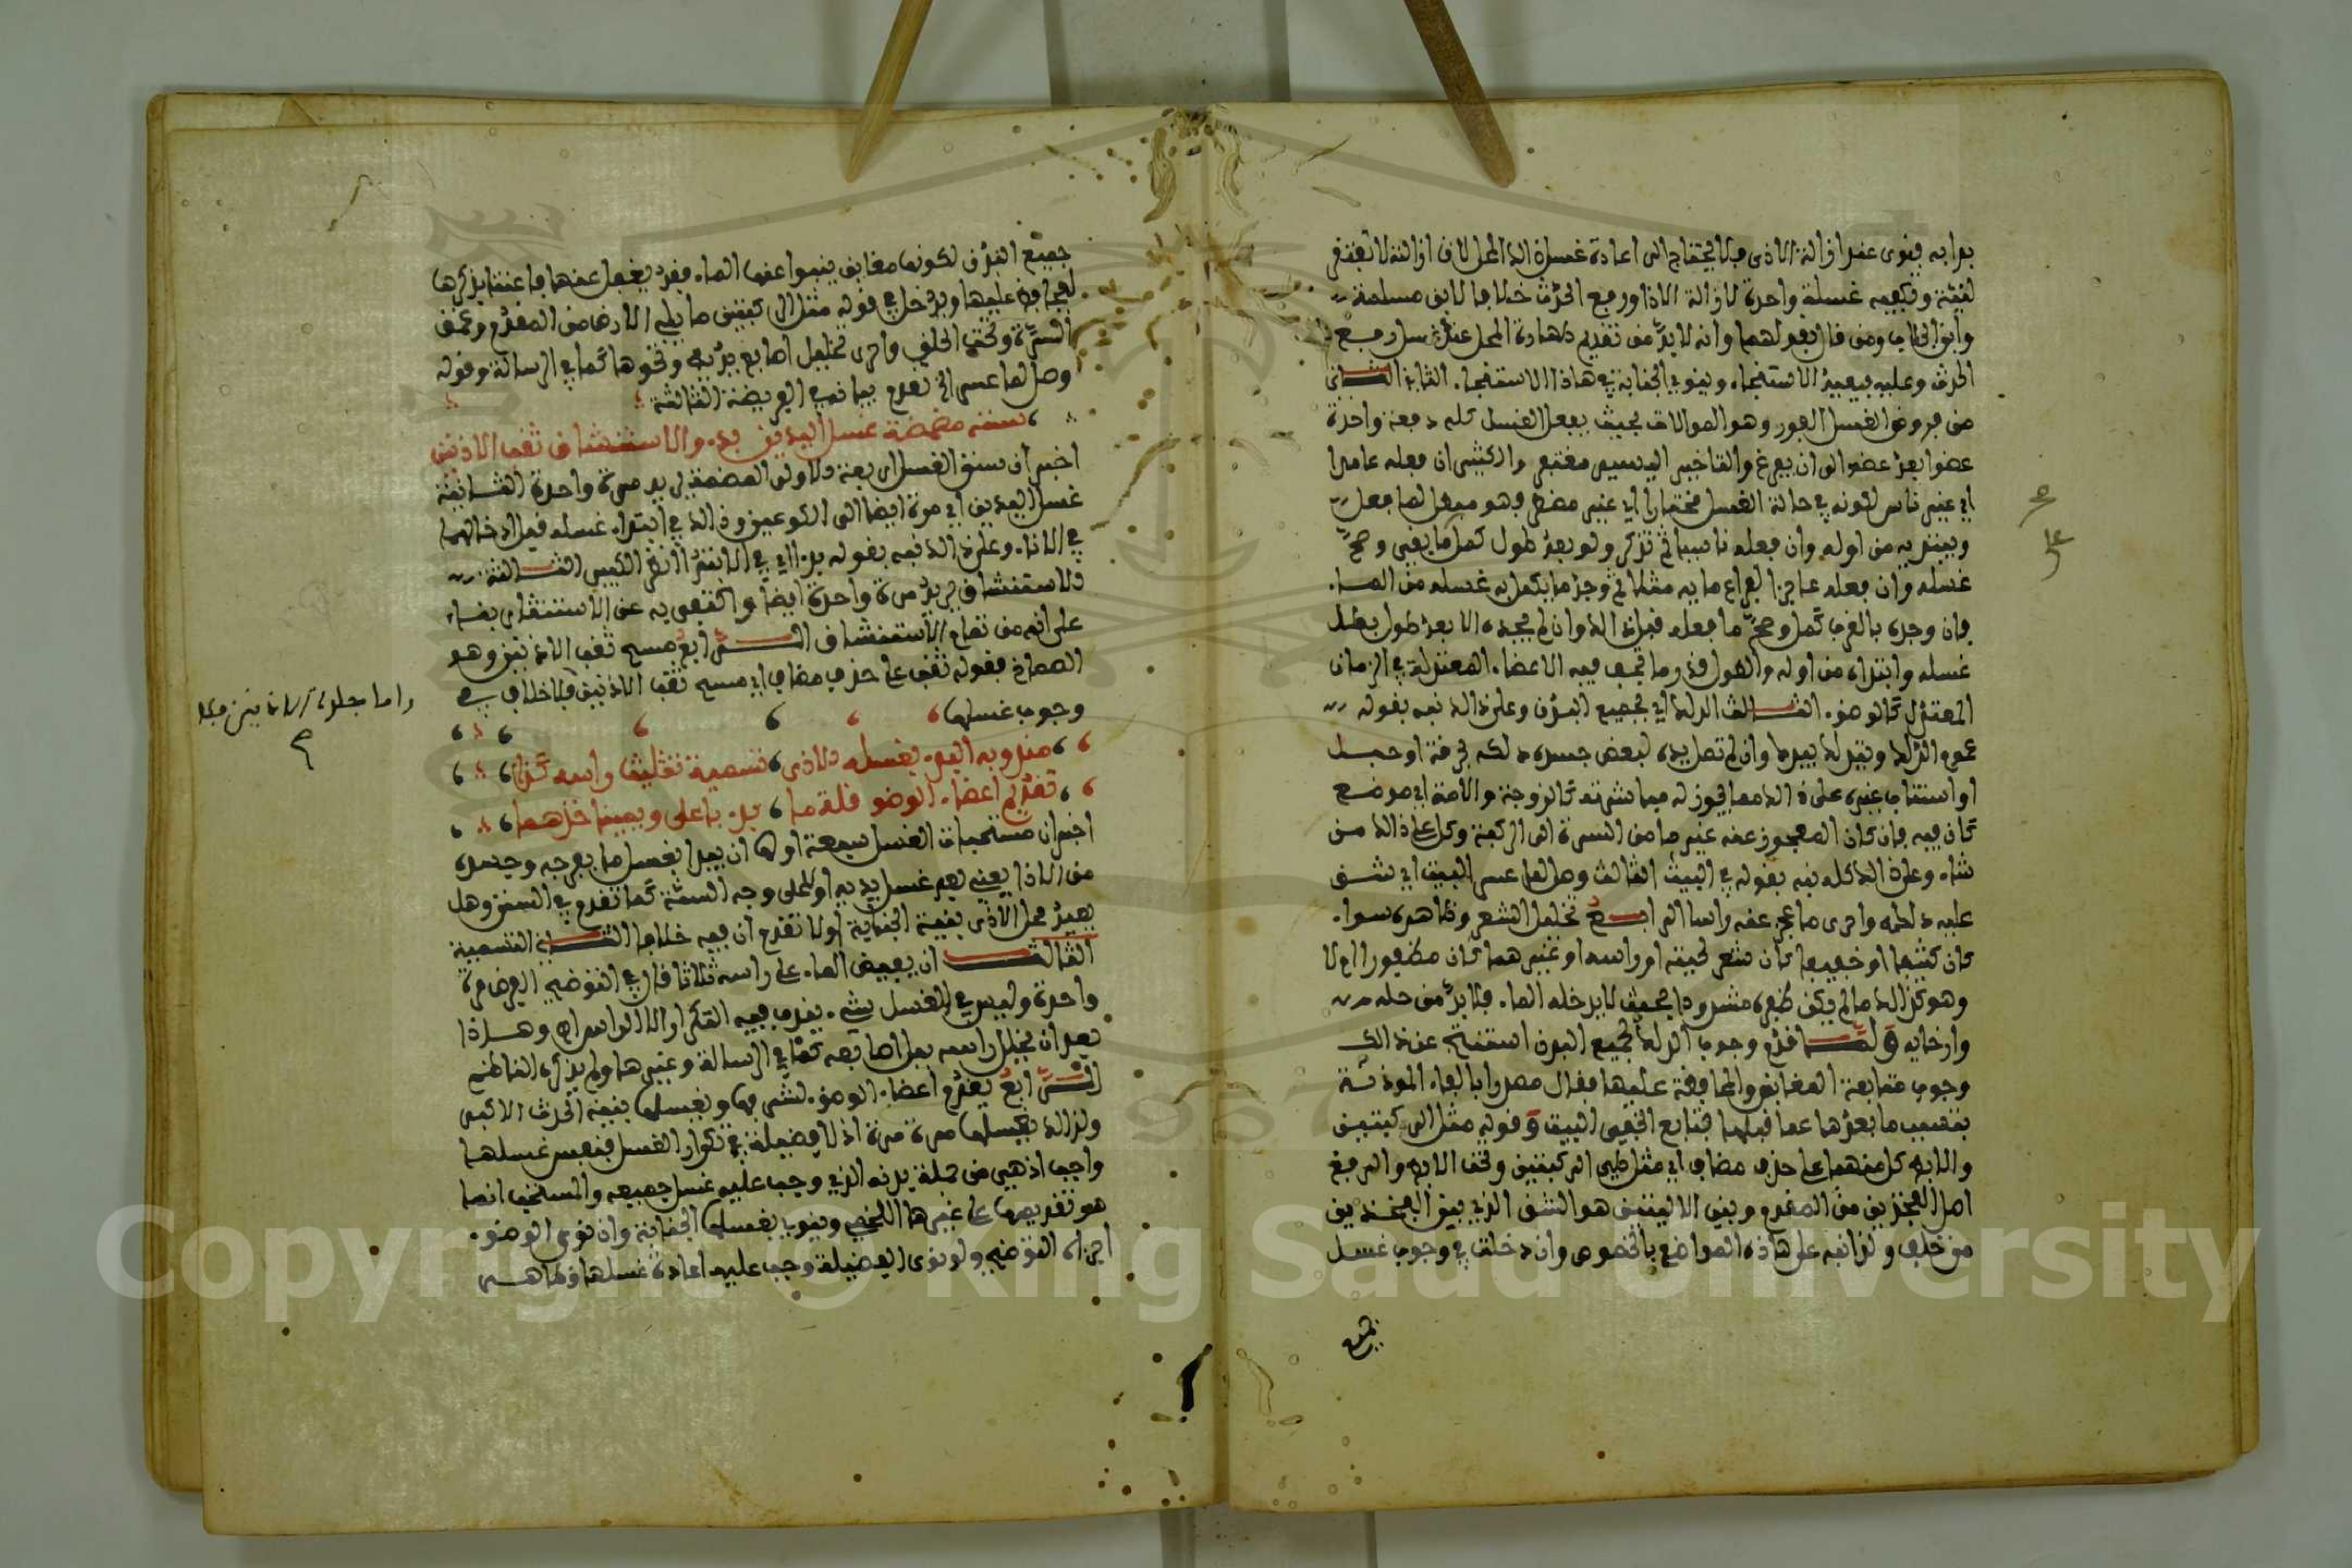 بدا به ينوى عند ازالة الاذى فلا يحتاج الى اعادة غسل ذالك المحل لان ازالته لا تفتقر
لنية وتكفيه غسلة واحدة لازالة الاذا ورفع الحدث خلافا لابن مسلمة
وابن الجلاب ومن قال بقولهما وانه لا بد من تقديم طهارة المحل عند غسل رفع
الحدث وعليه فيعيد الاستنجاء وينوي الجنابة في هاذا الاستنجاء. الثانى
من فروض الغسل الفور وهو الموالات بحيث يفعل الغسل كله دفعة واحدة
عضوا بعد عضو الى ان يفرغ والتاخير اليسير مغتفر والكثير ان فعله عامدا
اي غير ناس لكونه في حالة الغسل مختارا اي غير مضطر فهو مبطل لما فعل
ويبتدئه من اوله وان فعله ناسيا ثم تذكر ولو بعد طول كمل ما بقي وصح
غسله وان فعله عاجزا لفراغ مائه مثلا ثم وجد ما يكمل به غسله من الماء.
فان وجده بالقرب كمل وصح ما فعله قبل ذالك وان لم يجده الا بعد طول بطل
غسله وابتداه من اوله والطول قدر ما تجف فيه الاعضاء المعتدلة في الزمان
المعتدل كالوضوء. الثالث الدلك اي لجميع البدن وعلى ذالك نبه بقوله
عموم الدلك ويتدلك بيده وان لم تصل يده لبعض جسده دلكه بخرقة او حبل
او استناب غيره على ذالك مما يجوز له مباشرته كالزوجة والامة اي موضع
كان فيه فان كان المعجوز عنه غير ما من السرة الى الركبة وكل على ذالك من
شاء وعلى ذالك كله نبه بقوله في البيت الثالث وصل لما عسر البيت اي شق
عليه دلكه واحرى ما عجز عنه راسا الرابع تخليل الشعر وظاهره سواء.
كان كثيفا او خفيفا كان شعر لحيته او راسه او غيرهما كان مظفورا ام لا
وهو كذالك ما لم يكن ظفره مشدودا بحيث لا يدخله الماء. فلا بد من حله
وارخايه ولما قدم وجوب الدلك لجميع البدن استنتج عن ذالك
وجوب متابعة المغابن والمحافظة عليها فقال مصدرا بالفاء الموذنة
بتسبب ما بعدها عما قبلها فتابع الخفي البيت وقوله مثل الركبتين
والابط كل منهما على حذف مضاف اي مثل طي الركبتين وتحت الابط والرفغ
اصل الفخذين من المقدم وبين الاليتين هو الشق الذي بين الفخذين
من خلف ولذا نبه على هاذه المواضع بالخصوص وان دخلت في وجوب غسل
جميع
جميع البدن لكونها مغابن ينبوا عنها الماء فقد يغفل عنها فاعتنا بذكرها
ليحافظ عليها ويدخل في قوله مثل الركبتين ما يلي الارض من القدم وعمق
السرة وتحت الحلق واحرى تخليل اصابع يديه ونحوها كما في الرسالة وقوله
وصل لما عسر الخ تقدم بيانه في الفريضة الثالثة
سننه مضمضة غسل اليدين بدء والاستنشاق ثقب الاذنين
اخبر ان سنن الغسل اربعة الاولى المضمضة اي مرة واحدة الثانية
غسل اليدين اي مرة ايضا الى الكوعين وذالك في ابتداء غسله قبل ادخالهما
في الاناء وعلى ذالك نبه بقوله بدءا اي في الابتداء الثالثة
الاستنشاق مرة واحدة ايضا واكتفى به عن الاستنثار بناء
على انه من تمام الاستنشاق الرابع مسح ثقب الاذنين وهو
الصماخ فقوله ثقب على حذف مضاف اي مسح ثقب الاذنين فلا خلاف في
وجوب غسلهما
واما جلدة الاذنين
مندوبه البدء بغسله الاذى تسمية تثليث راسه كذا
تقديم اعضاء الوضو قلة ما بدء باعلى ويمين خذهما
اخبر ان مستحبات الغسل سبعة اولها ان يبدا بغسل ما بفرجه وجسده
من الاذا يعني بعد غسل يديه اولا على وجه السنة كما تقدم في السنن وهل
يعيد محل الاذى بنية الجنابة اولا تقدم ان فيه خلافا الثاني التسمية
الثالث ان يفيض الماء على راسه ثلاثا قال في التوضيح الفرض مرة
واحدة وليس في الغسل شيء يندب فيه التكرار الا الراس اي وهذا
بعد ان يخلل راسه ببل اصابعه كما في الرسالة وغيرها ولم يذكره الناظم
الرابع يقدم اعضاء الوضوء لشرفها ويغسلها بنية الحدث الاكبر
ولذالك يغسلها مرة مرة اذ لا فضيلة في تكرار الغسل فنفس غسلها
واجب اذ هي من جملة بدنه الذي وجب عليه غسل جميعه والمستحب انما
هو تقديمها على غيرها اللخمي وينوي بغسلها الجنابة وان نوى الوضوء.
اجزاه التوضيح ولو نوى الفضيلة وجب عليه اعادة غسلها وظاهر
Copyright © King Saud University